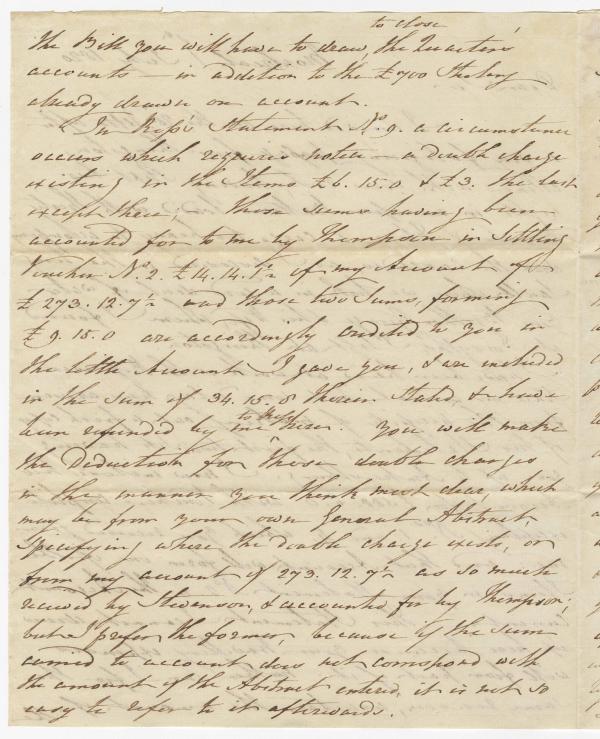 to close
the Bill you will have to draw, the Quarter's
accounts — in addition to the £700 Sterling
already drawn on account.
In Statement No. 9. a circumstance
occurs which requires notice — a double charge
existing in the Items £6.15.0 & £3. the last
except three; — those sums having been
accounted for to me by Thompson in Settling
Voucher No. 2. £14.14.1½ of my Account of
£273.12.7½ and those two Sums, forming
£9.15.0 are accordingly credited to you in
the little Account I gave you, & are included
in the Sum of 34.15.8 therein Stated & have
to
been refunded by me. You will make
the Deduction for these double charges
in the manner you think most clear, which
may be from your own General Abstract,
Specifying where the double charge exists, or
from my account of 273.12.7½ as so much
received by Stevenson, & accounted for by Thompson;
but I prefer the former, because if the Sum
carried to account does not correspond with
the amount of the Abstract entered, it is not so
easy to refer to it afterwards.